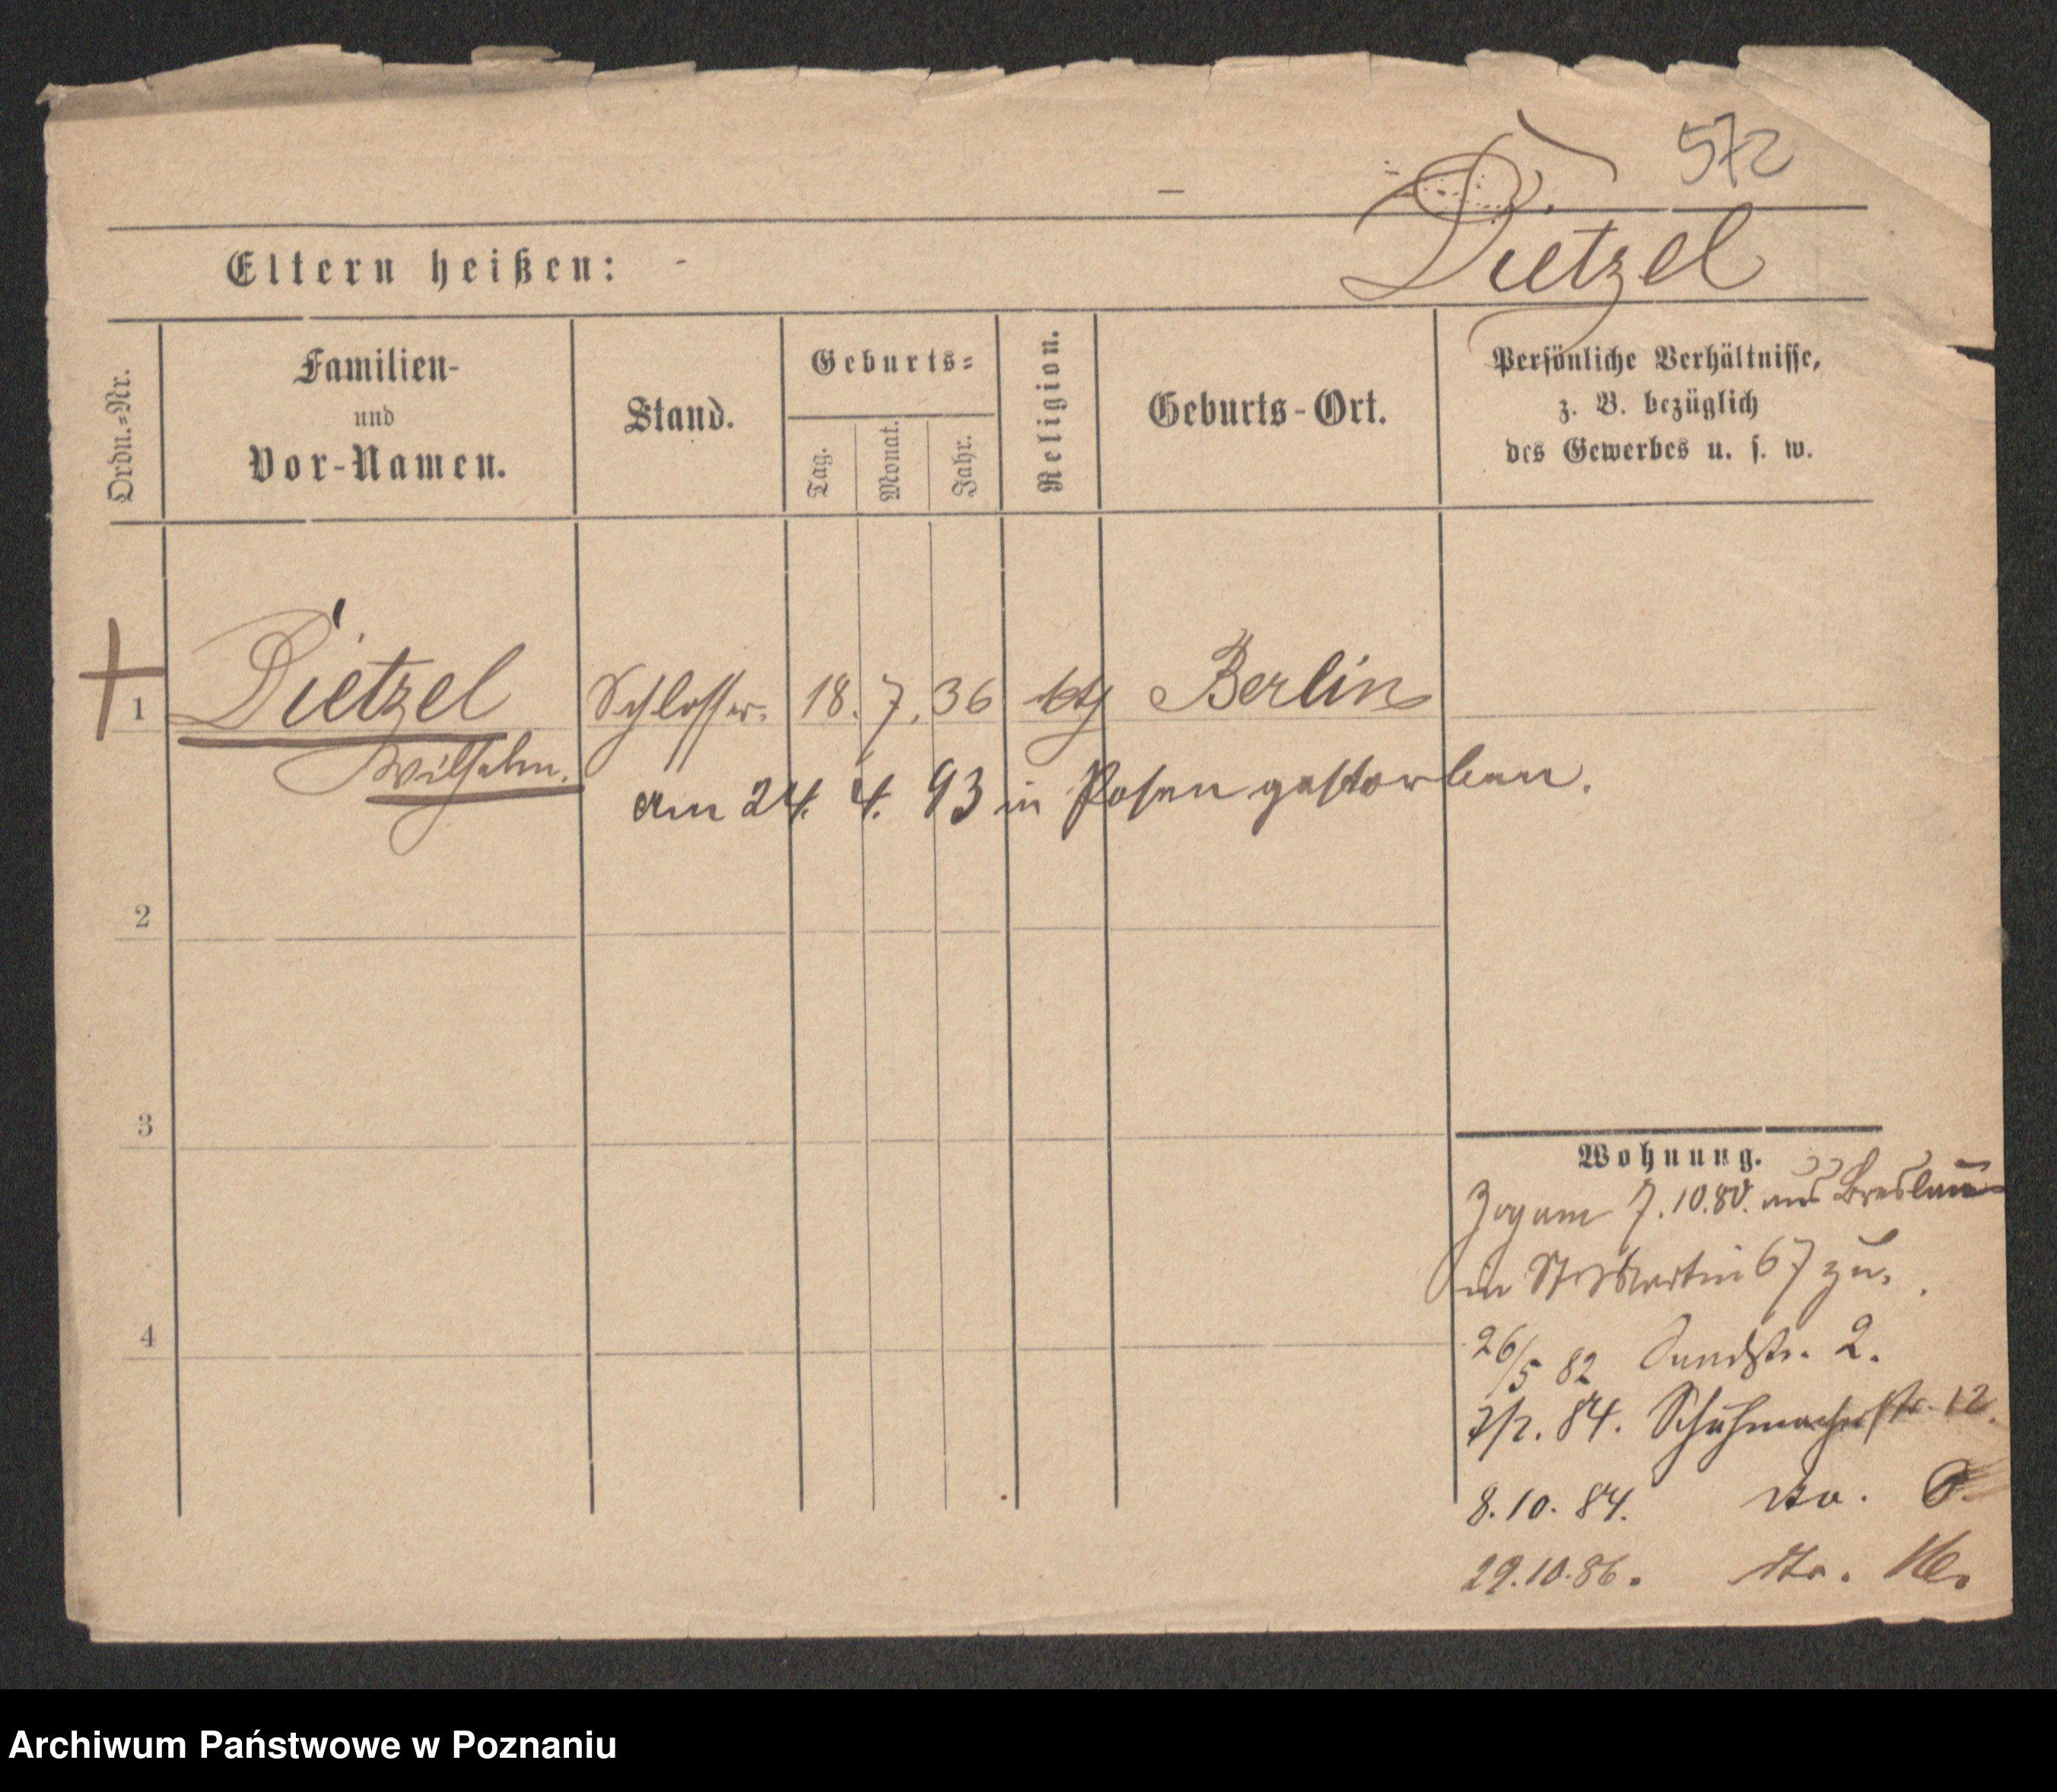 572
D.
Dietzel
Eltern heißen: -
Ordn.-Nr.
Familien-
und
Vor-Namen.
Stand.
Geburts-
Tag.
Monat.
Jahr.
Religion.
Geburts-Ort.
Persönliche Verhältnisse,
z. B. bezüglich
des Gewerbes u. s. w.
1 Dietzel Schlosser. 18. 7. 36 kth Berlin
Wilhelm.
am 24. 4. 93 in Posen gestorben.
2
3
4
Wohnung.
Zog am 7.10.80. aus Breslau
in St Martin 67 zu.
26/5 82 Sandstr. 2.
84. Schuhmacherstr 12.
8.10.84. dto.
29.10.86. dto. 16.
Archiwum Państwowe w Poznaniu